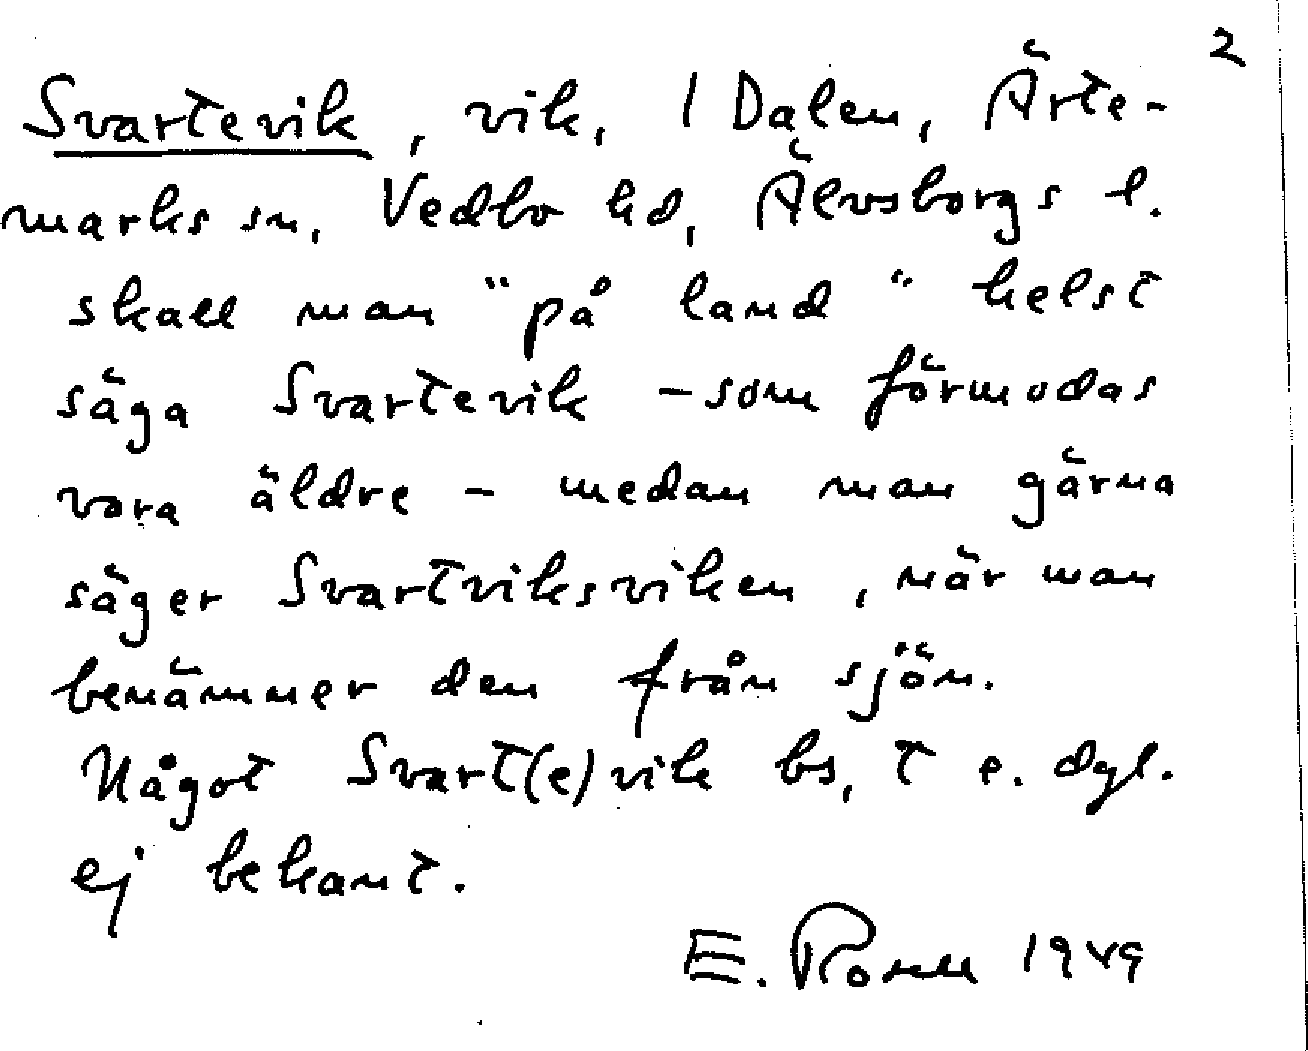 2
Svartevik, vik, I Dalen, Ärte-
marks sn, Vedbo hd, Älvsborgs l.
skall man "på land" helst
säga Svartevik – som förmodas
vara äldre – medan man gärna
säger Svartviksviken, när man
benämner den från sjön.
Något Svart(e)vik bs, t e. dgl.
ej bekant.
E. Rosell 1949